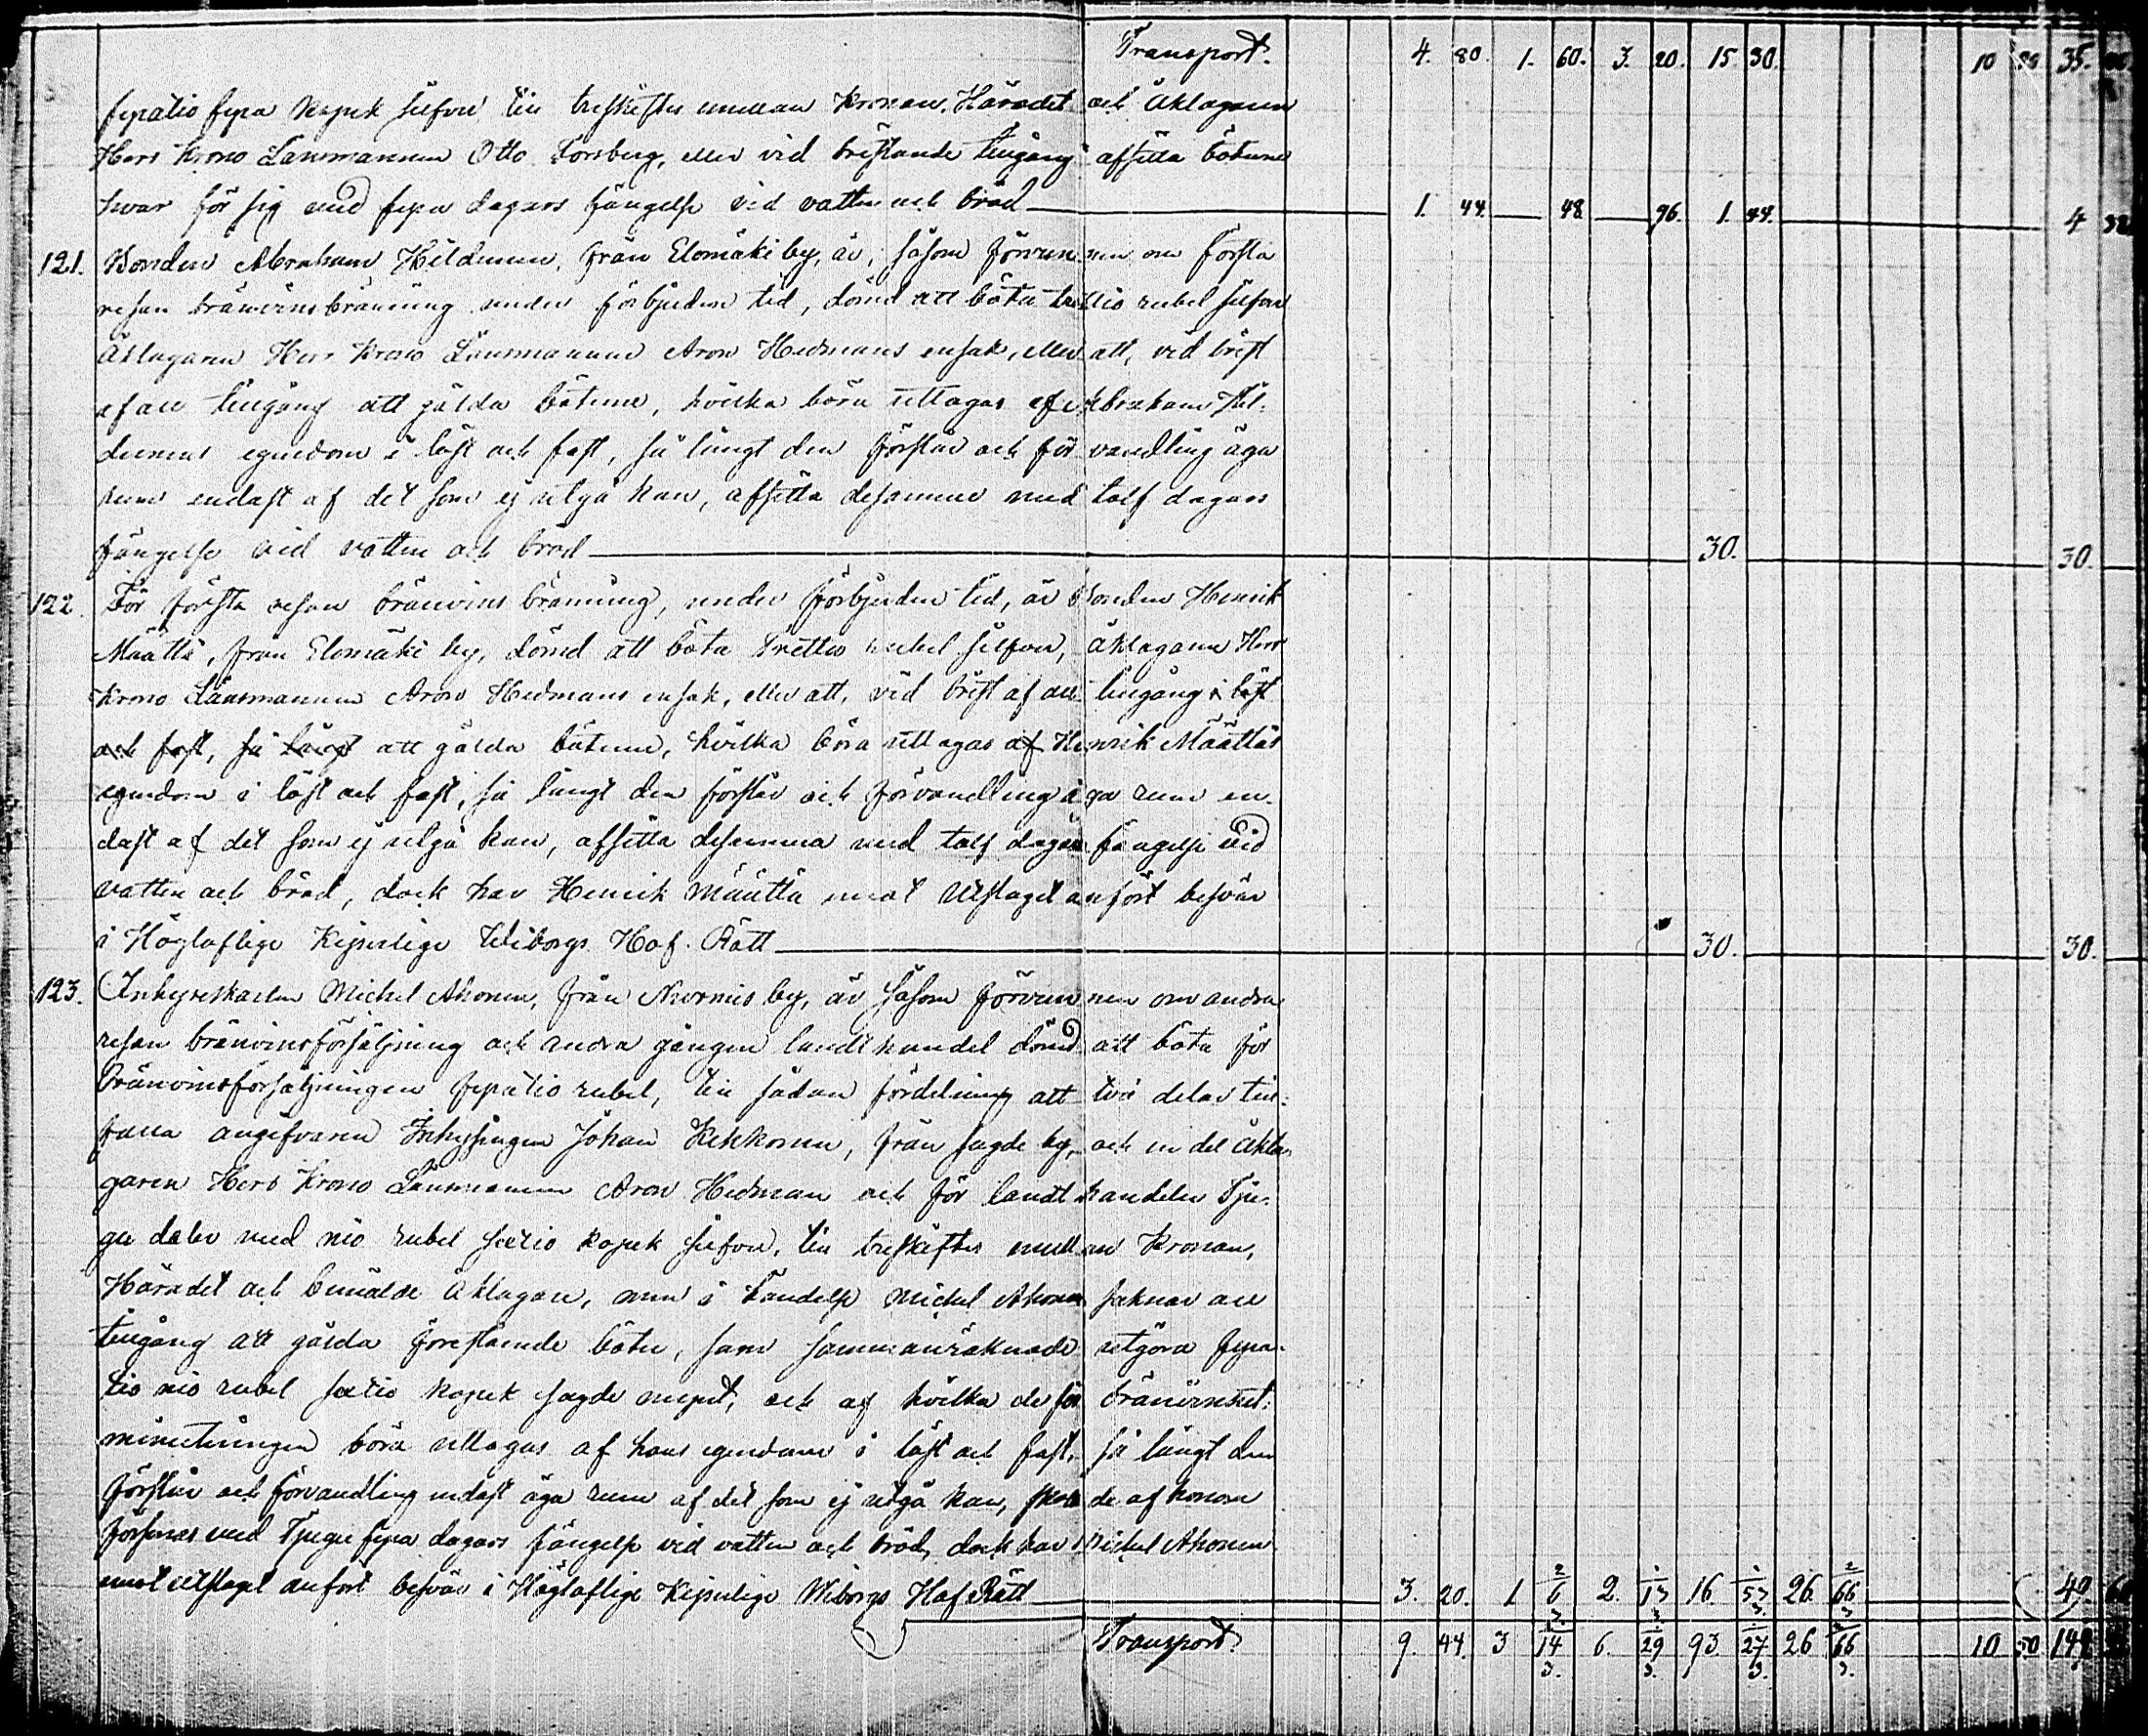 Transport. 4. 80. 1. 60. 3. 20. 15. 30. 10 35.
fyratio fyra kopek silfver till treskiftes emellan Kronan, Häradet och Åklagaren
Herr Krono Länsmannen Otto Forsberg, eller vid bristande tillgång afsitta böterne
hvar för sig med fyra dagars fängelse vid vatten och bröd 1. 44. 48. 96. 1. 44. 4 32
121. Bonden Abraham Hildunen, från Elomäki by, är, såsom förvunnen om första
resan bränvinsbränning under förbjuden tid, dömd att böta trettio rubel silfver
Åklagaren Herr Krono Länsmannen Aron Hedmans ensak, eller att, vid brist
af all tillgång att gälda böterne, hvilka böra uttagas af Abraham Hil-
dunens egendom i löst och fast, så långt den förslår och förvandling äga
rum endast af det som ej utgå kan, afsitta desamme med tolf dagars
fängelse vid vatten och bröd 30. 30.
122. För första resan bränvins bränning, under förbjuden tid, är Bonden Henrik
Määttä, från Elomäki by, dömd att böta Trettio rubel silfver, åklagaren Herr
Krono Länsmannen Aron Hedmans ensak, eller att, vid brist af all tillgång i löst
och fast, så långt att gälda böterne, hvilka böra uttagas af Henrik Määttäs
egendom i löst och fast, så långt den förslår och förvandling äga rum en-
dast af det som ej utgå kan, afsitta desamma med tolf dagars fängelse vid
vatten och bröd, dock har Henrik Määttä emot Utslaget anfört besvär
i Höglofliga Kejserliga Wiborgs Hof-Rätt 30. 30.
123. Inhyseskarlen Michel Ahonen, från Nurmis by, är såsom förvunnen om andra
resan bränvinsförsäljning och andra gången landthandel dömd att böta för
Bränvinsförsäljningen fyratio rubel, till sådan fördelning att två delar till-
falla angifvaren Inhysingen Johan Kekkonen, från sagde by, och en del åkla-
garen Herr Krono Länsmannen Aron Hedman och för landthandeln Tju-
gu daler med nio rubel sextio kopek silfver, till treskiftes emellan Kronan,
Häradet och bemälde Åklagare, men i händelse Michel Ahonen saknar all
tillgång att gälda förestående böter, som sammanräknade utgöra fyra-
tio nio rubel sextio kopek sagde mynt, och af hvilka de för bränvinsut-
minuteringen böra uttagas af hans egendom i löst och fast, så långt den
förslår och förvandling endast äga rum af det som ej utgå kan, skola de af honom
försonas med Tjugu fyra dagars fängelse vid vatten och bröd, dock har Michel Ahonen
emot utslaget anfört besvär i Höglofliga Kejserliga Wiborgs Hof Rätt 3. 20. 1 6 2/3 2. 13 1/3 16. 53 1/3 26. 66 2/3 49. 60
Transport. 9. 44. 3 14 2/3 6. 29 1/3 93. 27 1/3 26 66 2/3 10 50 149